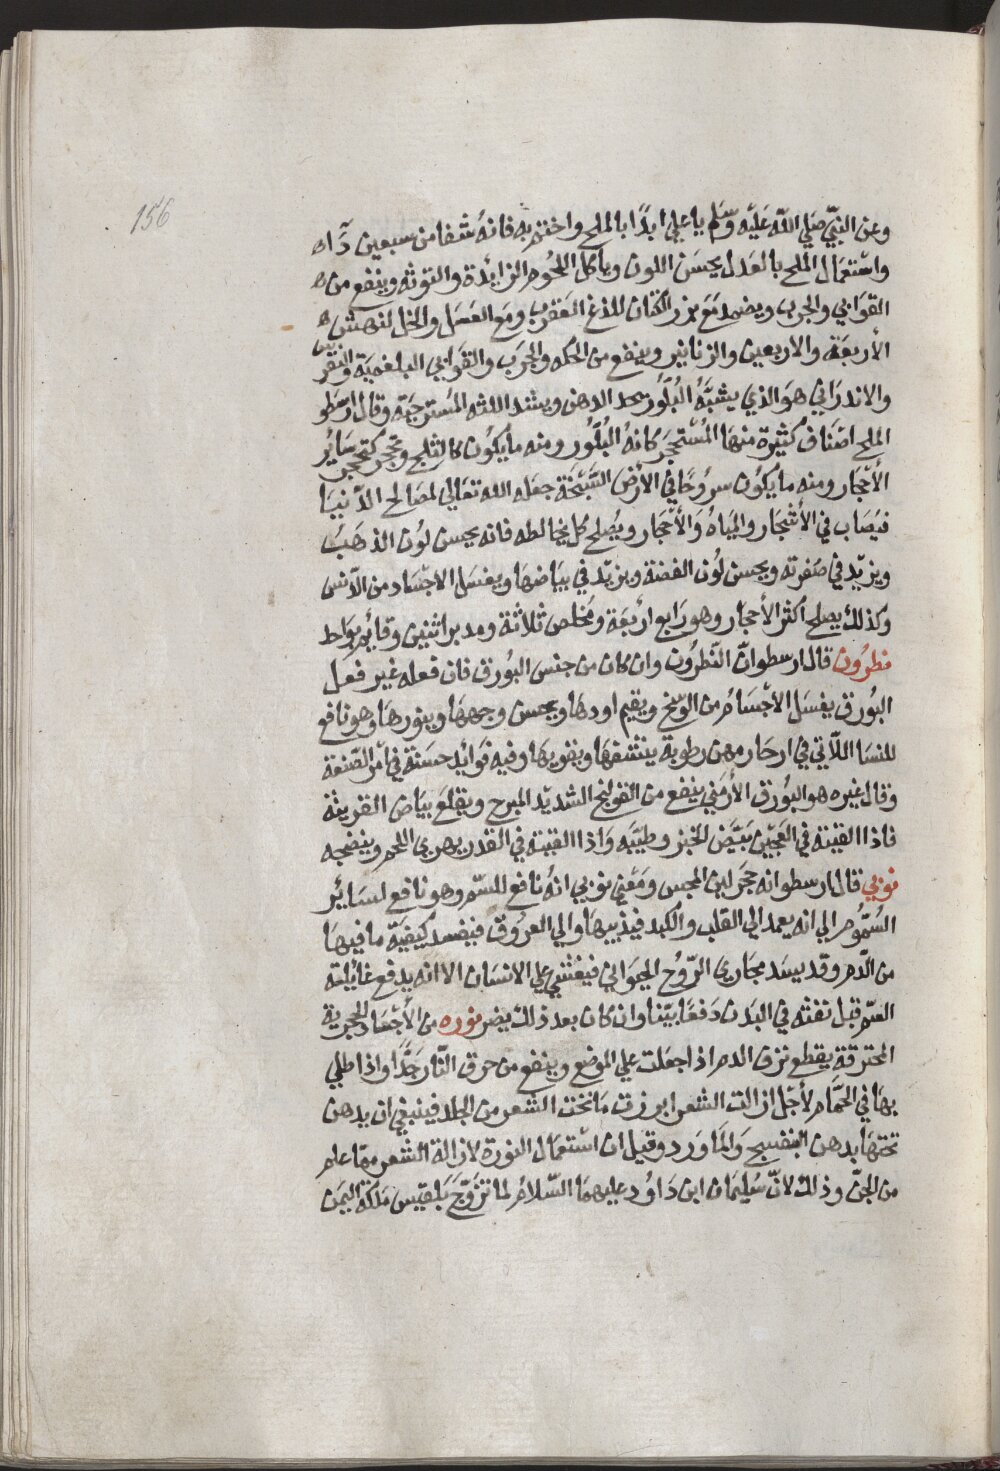 156
وعن النبيّ صَلي اللّه عَليْه وسَلم يا علي ابدًا بالملح واختم به فانهُ شفا من سبعين دَآء
واسْتعمَال الملح بالعَدل يحسَن اللون ويأكل اللحُوم الزائدة والتوثه وينفع من
القوَابي والجرب ويضمد مَع بزر الكتان للدغ العَقرب ومَع العَسَل والخل لنهش
الأربعَة والاربعين والزنانير وينفع من الحكه والجرَب والقوَابي البلغميَة والنقرس
والاندرَاني هوَ الذي يشبَهُ البُلّوُر يحد الدهن ويشد اللثه المُسترخيَة وقال ارسَطو
الملح اصْنَاف كثيرة منهَا المُسْتحجَر كانهُ البُلّوُر ومنه مايكُون كالثلج وتحجر كتحجر سَائر
الأحْجَار ومنه مايكُون سروُحًا في الأرْض السَّبْخَة جعَله الله تعَالي لمصَالح الدّنيَا
فيُصَاب في الأشْجَار والميَاهُ وَالأحْجَار ويُصْلح كل يخالطه فانه يحسن لوُن الذهَبُ
ويزيّد في صفرته ويحسن لوُن الفضة ويزيّد في بيَاضهَا ويغسَل الاجْسَاد من الدّنس
وكذلك يصلح أكثر الأحجار وهو رَابع ارْبعَة ومُخلص ثلاثَة ومدبر اثنين وقائم بوَاحد
نطرُون قال ارسطو انّ النّطرُون وان كان من جنس البوُرق فان فعله غير فعْل
البوُرق يغسَل الاجْسَام من الوسَخ ويقيم اودهَا ويحسن وجههَا وينورهَا وهو نافع
للنسَا اللّاتي في ارحَارمهن رطوبة ينشفهَا ويقويهَا وفيه فوَائد حسَنة في أمْر الصّنعة
وقال غيره هو البوُرق الأرْمَني ينفع من القولنج الشديّد المبرح ويقلعَ بيَاض القرينة
فاذا القيتَه في العَجيّن بَيّض الخبز وطيّبَه وَاذا القيتَه في القدر يهري اللحم وينضجه
نوبي قال ارسطو انه حَجر لين المجس ومَعْني نوبي انهُ نافع للسّم وهو نافع لسَائر
السُمُوم الي انه يعمد الي القلب والكبد فيذيبهَا والي العرُوق فيفسد كيفيّة ما فيهَا
من الدّم وقد يسَد مجَاري الرّوُح الحيوَاني فيغشي علي الانسَان الا انه يدفع غائلته
السّم قبل نفثه في البَدَن دَفعًا بيّنا وان كان بعد ذلك يضر نوره من الأجْسَاد الحجرية
المحترقة يقطع نزف الدم اذا جعلت علي الموضع وينفع من حرق النّار جدًّا واذا طلي
بهَا في الحمّام لأجْل ازالت الشعر ابرزت مَا تحت الشعر من الجلد فينبغي ان يدهن
تحتهَا بدهن البنفسج وَالمَاوَرد وقيل ان اسْتعمَال النورة لازالة الشعر ممّا علم
من الجنّ وذلك لانّ سُليمَان ابن دَاوُد عليهمَا السّلام لما تزوّجَ بَلقيس مَلكة اليمن